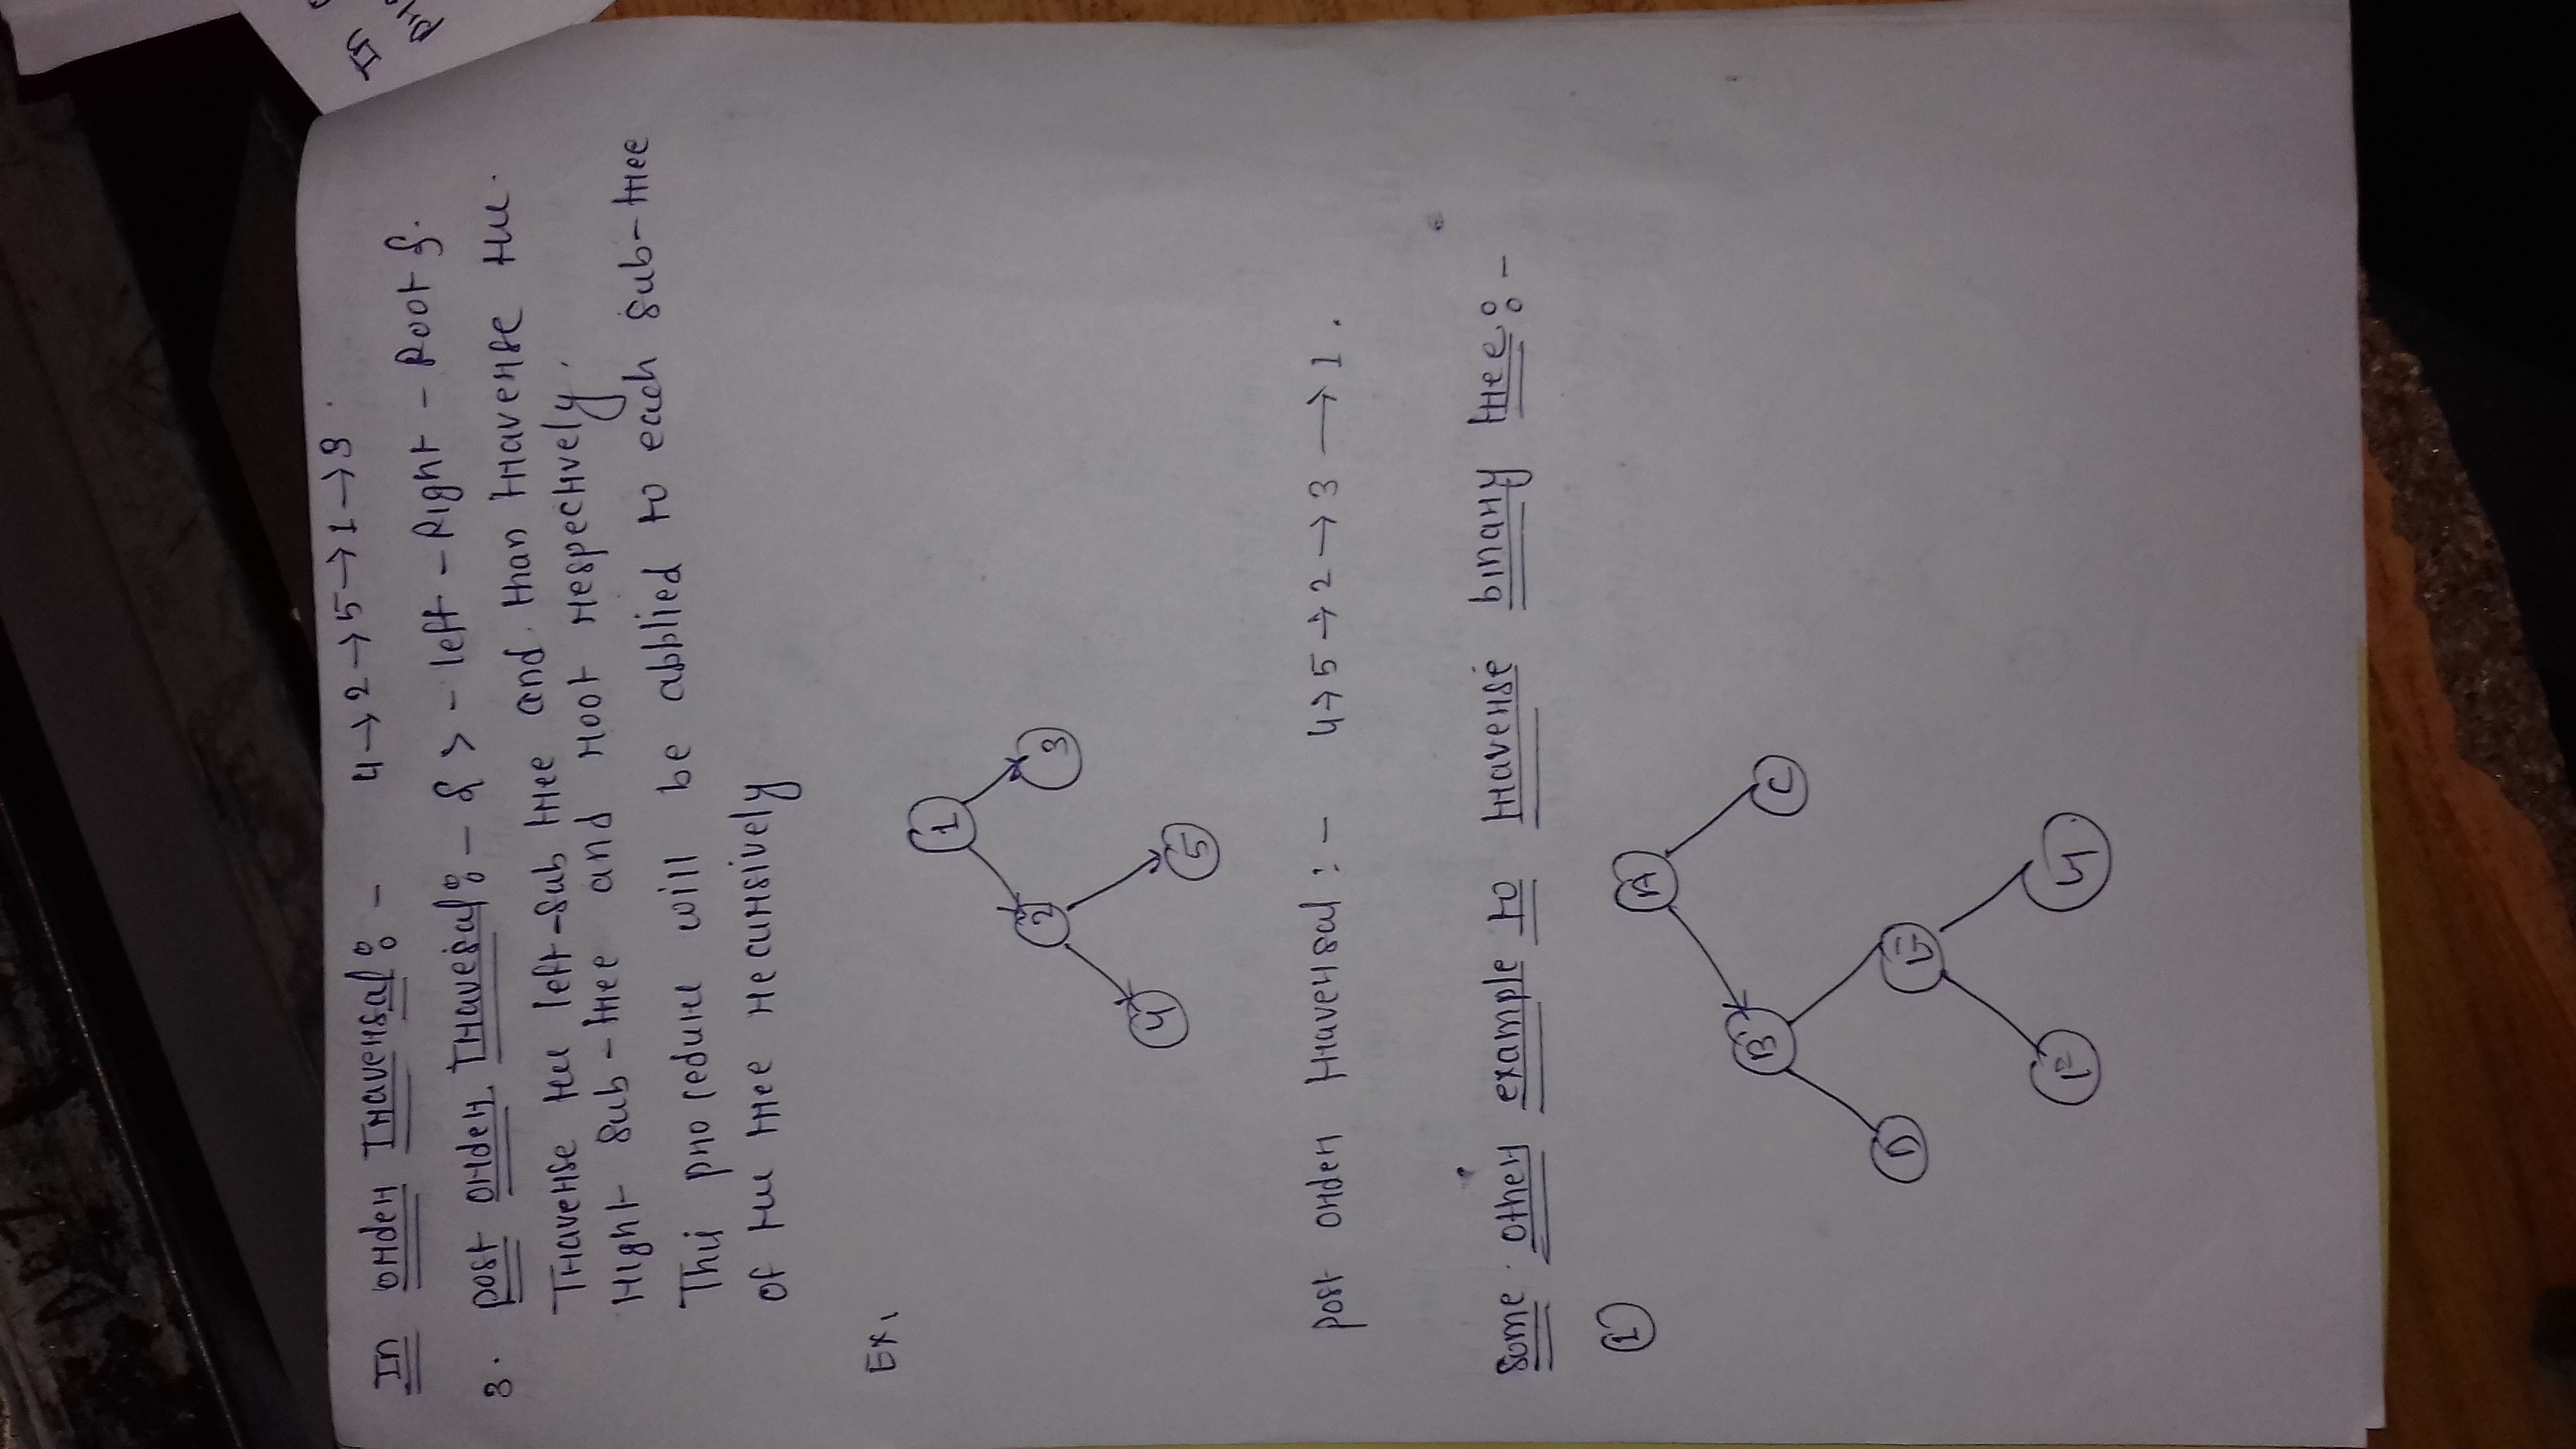 In order Traversal:- 4→2→5→1→3.
3. post order Travesal:- { > - left - Right - Root }.
Traverse the left-sub tree and than traverse the
right sub-tree and root respectively.
This procedure will be abblied to each sub-tree
of the tree recursively
Ex,
1
2 3
4 5
post order traversal :- 4→5→2→3→1.
Some other example to traverse binary tree:-
1
A
B C
D E
F G
In